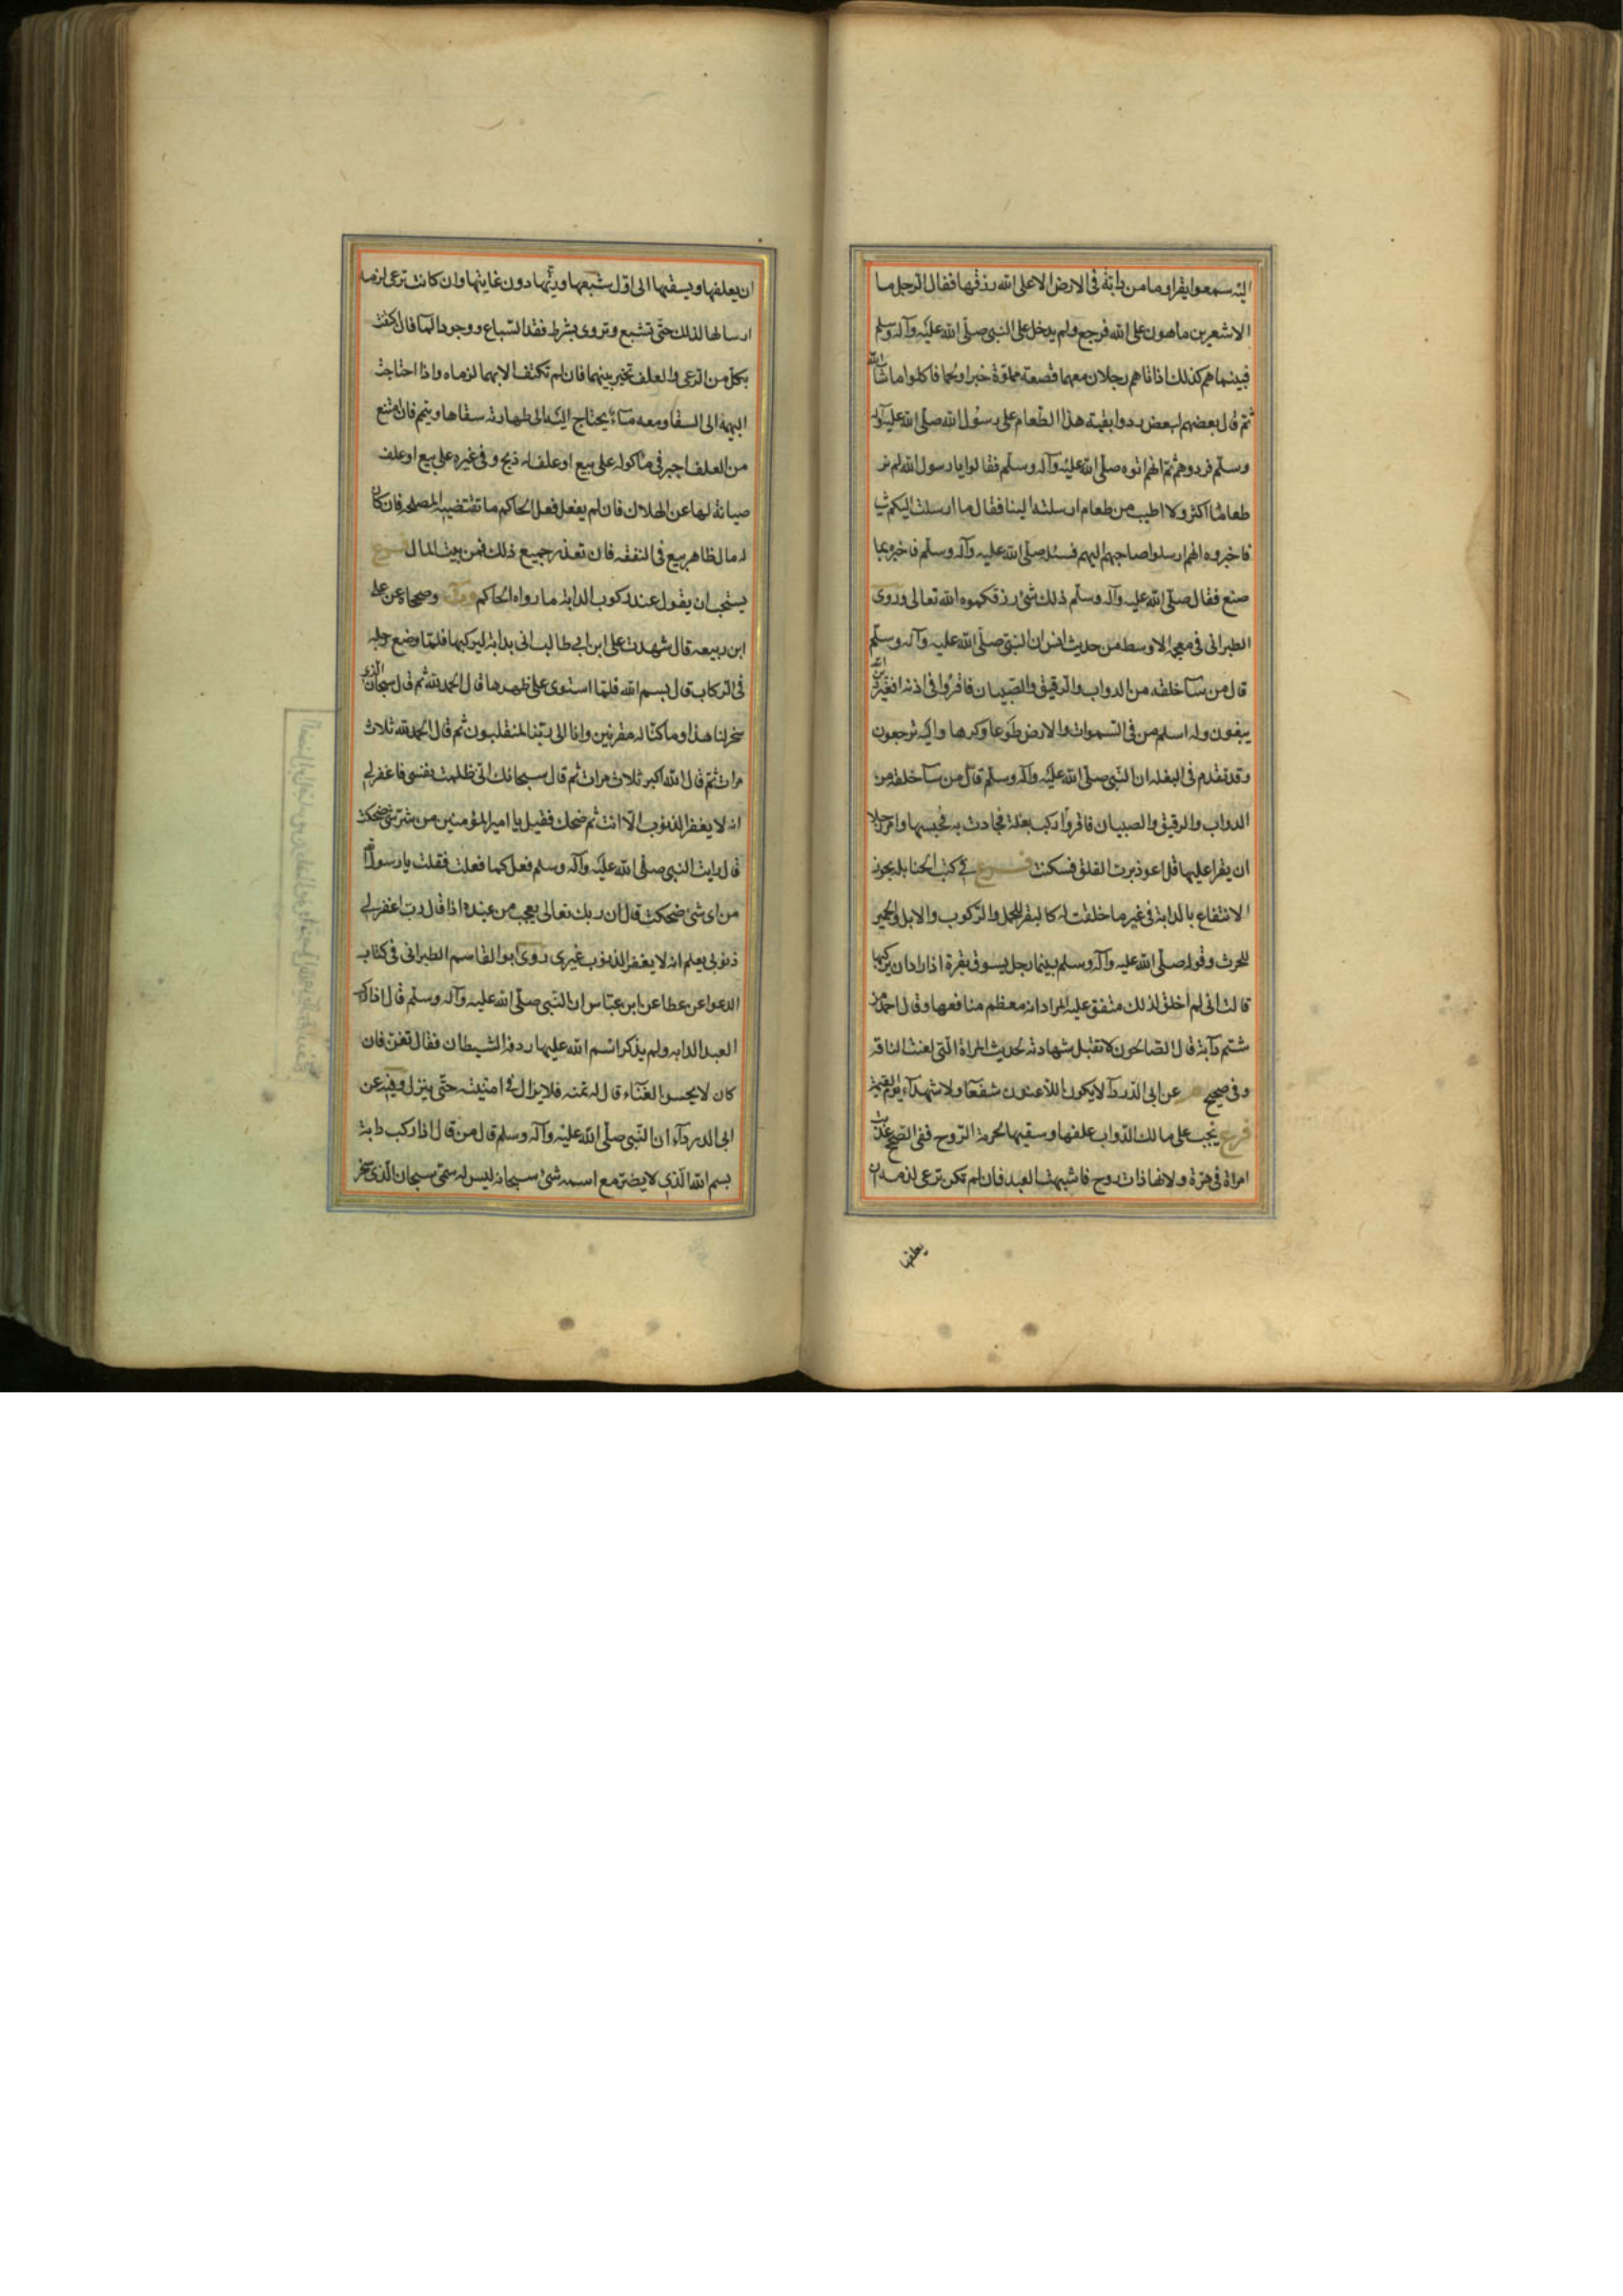 اليه سمعوا يقرا وما من دابة فى الارض الا على الله رزقها فقال الرجل ما
الاشعرين ماهون على الله فرجع ولم يدخل على النبى صلى الله عليه وآله وسلم
فبينما هم كذلك اذ اتاهم رجلان معهما قصعة مملوة خبزا ولحما فاكلوا ما شا الله
ثم قال بعضهم لبعض ردوا بقية هذا الطعام على رسول الله صلى الله عليه وآله
وسلم فردوهم ثم انهم اتوه صلى الله عليه وآله وسلم فقالوا يا رسول الله لم نر
طعاما اكثر ولا اطيب من طعام ارسلته الينا فقال ما ارسلت اليكم شى
فاخبروه انهم ارسلوا صاحبهم اليهم فسئله صلى الله عليه وآله وسلم فاخبره بما
صنع فقال صلى الله عليه وآله وسلم ذلك شئ رزقكموه الله تعالى وروى
الطبرانى فى معجمه الاوسط من حديث انس ان النبى صلى الله عليه وآله وسلم
قال من سآ خلقه من الدواب والرقيق والصبيان فاقروا فى اذنه افغير دين الله
يبغون وله اسلم من فى السموات والارض طوعا وكرها واليه ترجعون
وقد تقدم فى البغله ان النبى صلى الله عليه وآله وسلم قال من سآ خلقه من
الدواب والرقيق والصبيان فاقروا ركب بغلة فحادت به فحبسها وامر رجلا
ان يقرا عليها قل اعوذ برب الفلق فسكنت فرع فى كتب الحنابلة يجوز
الانتفاع بالدابة فى غير ما خلقت له كالبقر للحمل والركوب والابل والحمير
للحرث وقوله صلى الله عليه وآله وسلم بينما رجل يسوق بقرة اذ اراد ان يركبها
قالت انى لم اخلق لذلك متفق عليه المراد انه معظم منافعها وقال احمد من
شتم دآبة قال الصالحون لا تقبل شهادته لحديث المراة التى لعنت الناقة
وفى صحيح عن ابى الدردآ لا يكون اللاعنون شفعآ ولا شهدآء يوم القيمة
فرع يجب على مالك الدواب علفها وسقيها لحرمة الروح ففى الصحيح عذبت
امراة فى هرة ولانها ذات روح فاشبهت العبد فان لم تكن ترعى لزمه ان
يعلفها
ان يعلفها ويسقيها الى اول شبعها وريها دون غايتها وان كانت ترعى لزمه
ارسالها لذلك حتى تشبع وتروى بشرط فقد السباع ووجود المآ فان اكتفت
بكل من الرعى والعلف تخير بينهما فان لم تكتف الا بهما لزماه واذا احتاجت
البهيمة الى السقا ومعه مآء يحتاج اليه الى طهارته سقاها ويتيم فان امتنع
من العلف اجبر فى ماكوله على بيع او علف او ذبح وفى غيره على بيع او علف
صيانة لها عن الهلاك فان لم يفعل فعل الحاكم ما تقتضيه المصلحة فان كان
له مال ظاهر بيع فى النفقه فان تعذر جميع ذلك فمن بيت المال فرع
يستحب ان يقول عند ركوب الدابة ما رواه الحاكم وصححاه عن على
ابن ربيعه قال شهدت على ابن ابى طالب اتى بدابة ليركبها فلما وضع رجله
فى الركاب قال بسم الله فلما استوى على ظهرها قال الحمد لله ثم قال سبحان الذى
سخر لنا هذا وما كنا له مقرنين وانا الى ربنا لمنقلبون ثم قال الحمد لله ثلاث
مرات ثم قال الله اكبر ثلاث مرات ثم قال سبحانك انى ظلمت نفسى فاغفر لى
انه لا يغفر الذنوب الا انت ثم ضحك فقيل يا امير المؤمنين من اى شئ ضحكت
قال رايت النبى صلى الله عليه وآله وسلم فعل كما فعلت فقلت يا رسول الله
من اى شئ ضحكت قال ان ربك تعالى يعجب من عبده اذا قال رب اغفر لى
ذنوبى يعلم انه لا يغفر الذنوب غيرى روى ابو القاسم الطبرانى فى كتاب
الدعوا عن عطا عن ابن عباس ان النبى صلى الله عليه وآله وسلم قال اذا ركب
العبد الدابه ولم يذكر اسم الله عليها ردفه الشيطان فقال تغن فان
كان لا يحسن الغنآء قال له تمنه فلا يزال فى امنيته حتى ينزل وفيه عن
ابى الدردآء ان النبى صلى الله عليه وآله وسلم قال من قال اذا ركب دابة
بسم الله الذى لا يضر مع اسمه شئ سبحانه ليس له سمى سبحان الذى سخر